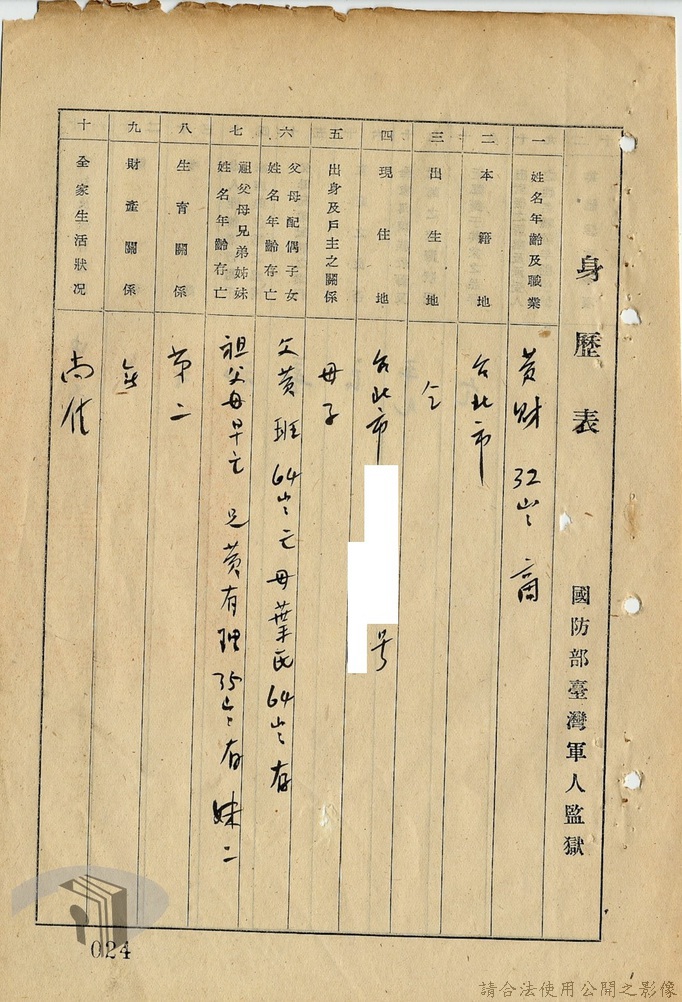 身歷表
國防部臺灣軍人監獄
一 姓名年齡及職業 黃財 32岁 商
二 本籍地 台北市
三 出生地 仝
四 現住地 台北市 号
五 出身及戶主之關係 母子
六 父母配偶子女姓名年齡存亡 父黃班 64岁亡 母葉氏 64岁存
七 祖父母兄弟姊妹姓名年齡存亡 祖父母早亡 兄黃有理 35岁存 妹二
八 生育關係 第二
九 財產關係 無
十 全家生活狀況 尚佳
024
請合法使用公開之影像